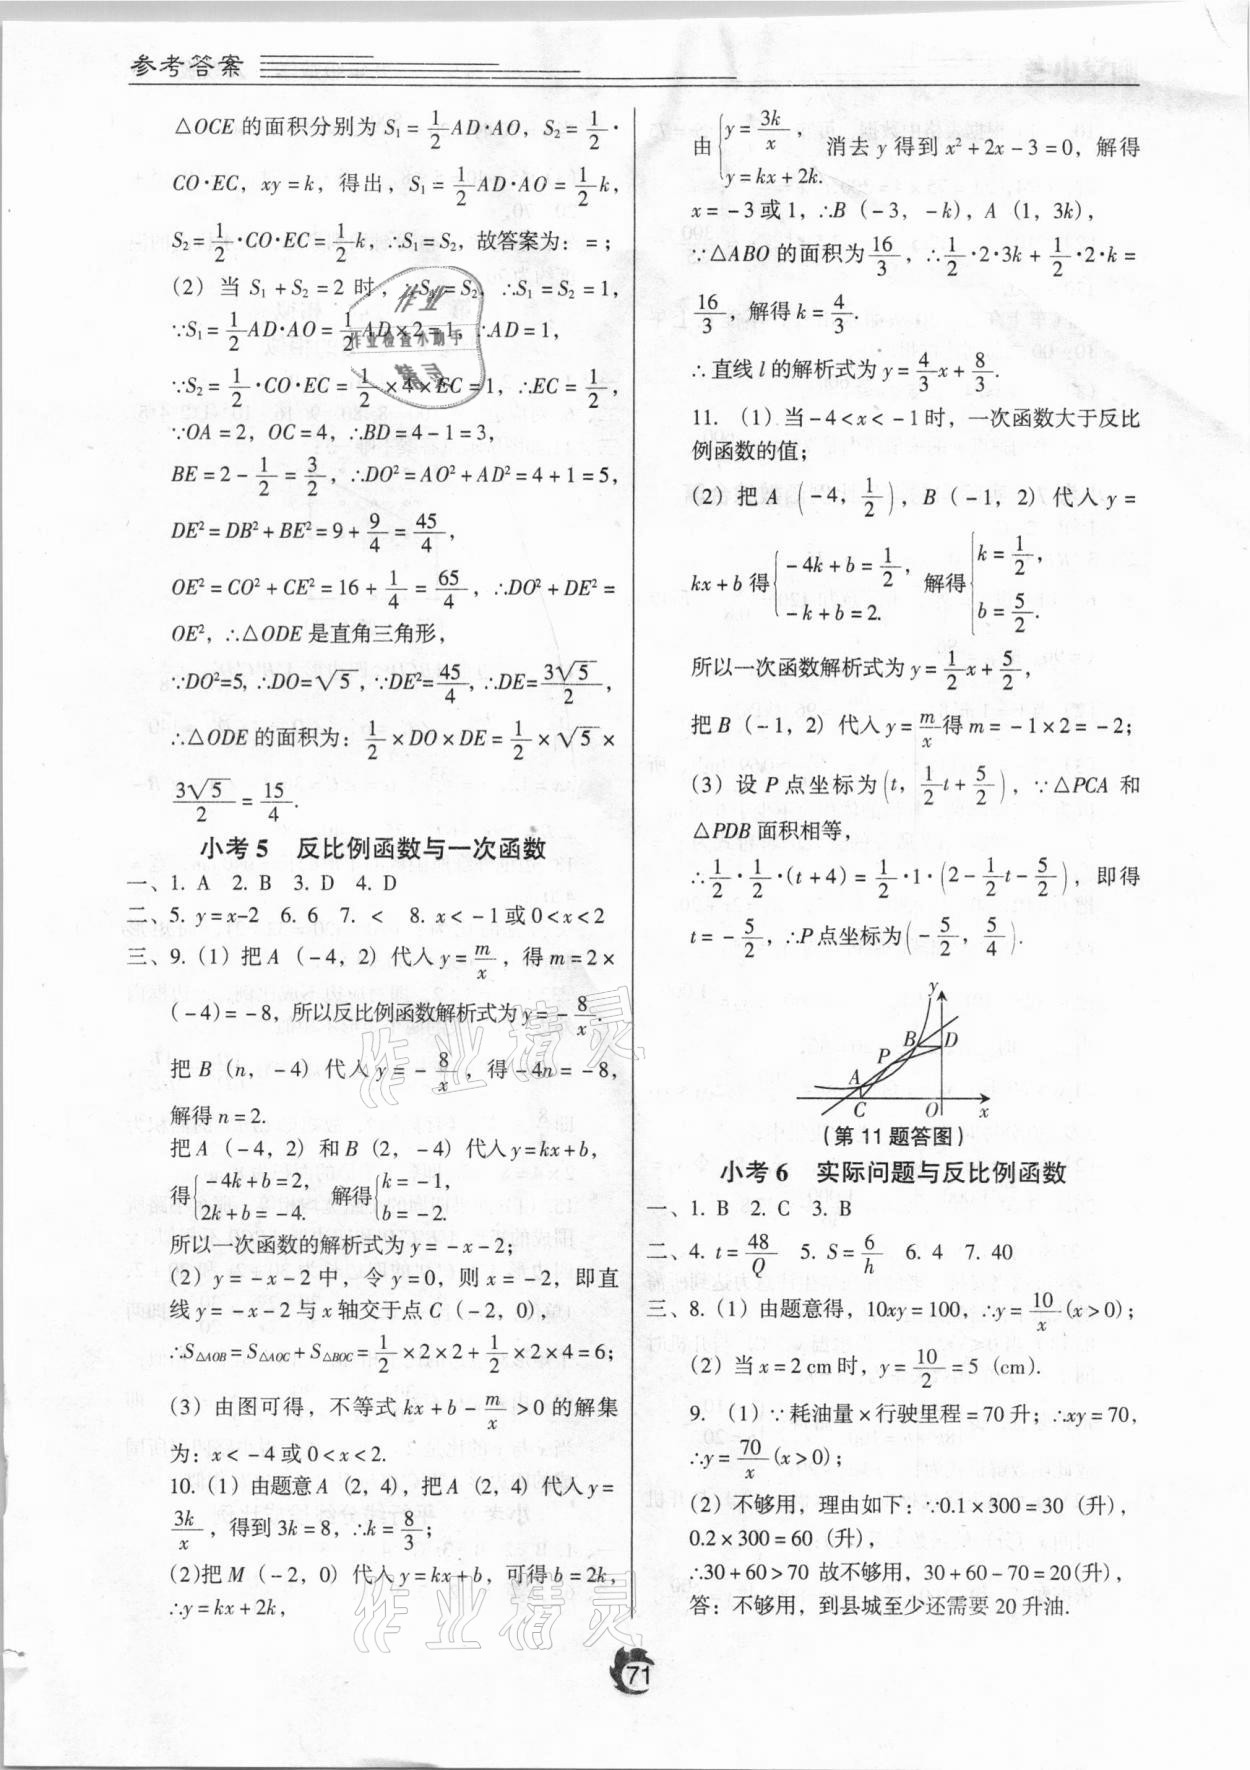 参考答案
△OCE 的面积分别为 S₁=1/2 AD·AO，S₂=1/2·
CO·EC，xy=k，得出，S₁=1/2 AD·AO=1/2 k，
S₂=1/2·CO·EC=1/2 k，∴S₁=S₂，故答案为：=；
(2) 当 S₁+S₂=2 时，∵S₁=S₂，∴S₁=S₂=1，
∵S₁=1/2 AD·AO=1/2 AD×2=1，∴AD=1，
∵S₂=1/2·CO·EC=1/2×4×EC=1，∴EC=1/2，
∵OA=2，OC=4，∴BD=4-1=3，
BE=2-1/2=3/2，∴DO²=AO²+AD²=4+1=5，
DE²=DB²+BE²=9+9/4=45/4，
OE²=CO²+CE²=16+1/4=65/4，∴DO²+DE²=
OE²，∴△ODE 是直角三角形，
∵DO²=5，∴DO=√5，∵DE²=45/4，∴DE=3√5/2，
∴△ODE 的面积为：1/2×DO×DE=1/2×√5×
3√5/2=15/4.
小考 5 反比例函数与一次函数
一、1. A 2. B 3. D 4. D
二、5. y=x-2 6. 6 7. < 8. x<-1或0<x<2
三、9.（1）把A（-4，2）代入y=m/x，得m=2×
(-4)=-8，所以反比例函数解析式为y=-8/x.
把B（n，-4）代入y=-8/x，得-4n=-8，
解得n=2.
把A（-4，2）和B（2，-4）代入y=kx+b，
得{-4k+b=2，2k+b=-4. 解得{k=-1，b=-2.
所以一次函数的解析式为y=-x-2；
(2) y=-x-2中，令y=0，则x=-2，即直
线y=-x-2与x轴交于点C（-2，0），
∴S△AOB=S△AOC+S△BOC=1/2×2×2+1/2×2×4=6；
(3) 由图可得，不等式kx+b-m/x>0的解集
为：x<-4或0<x<2.
10.（1）由题意A（2，4），把A（2，4）代入y=
3k/x，得到3k=8，∴k=8/3；
(2)把M（-2，0）代入y=kx+b，可得b=2k，
∴y=kx+2k，
由{y=3k/x，y=kx+2k. 消去y得到x²+2x-3=0，解得
x=-3或1，∴B（-3，-k），A（1，3k），
∵△ABO的面积为16/3，∴1/2·2·3k+1/2·2·k=
16/3，解得k=4/3.
∴直线l的解析式为y=4/3 x+8/3.
11.（1）当-4<x<-1时，一次函数大于反比
例函数的值；
(2) 把A（-4，1/2），B（-1，2）代入y=
kx+b得{-4k+b=1/2，-k+b=2. 解得{k=1/2，b=5/2.
所以一次函数解析式为y=1/2 x+5/2，
把B（-1，2）代入y=m/x得m=-1×2=-2；
(3) 设P点坐标为（t，1/2 t+5/2），∵△PCA和
△PDB面积相等，
∴1/2·1/2·(t+4)=1/2·1·（2-1/2 t-5/2），即得
t=-5/2，∴P点坐标为（-5/2，5/4）.
y
B D
P
A
C O x
（第11题答图）
小考 6 实际问题与反比例函数
一、1. B 2. C 3. B
二、4. t=48/Q 5. S=6/h 6. 4 7. 40
三、8.（1）由题意得，10xy=100，∴y=10/x(x>0)；
(2) 当x=2 cm时，y=10/2=5（cm）.
9.（1）∵耗油量×行驶里程=70升；∴xy=70，
∴y=70/x(x>0)；
(2) 不够用，理由如下：∵0.1×300=30（升），
0.2×300=60（升），
∴30+60>70 故不够用，30+60-70=20(升)，
答：不够用，到县城至少还需要20升油.
71
作业
作业检查小助手
精灵
作业精灵
作业精灵